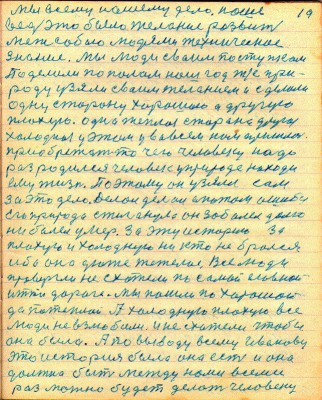 19
мы всему нашему делу, наше
вед, это было желание развит
меж собою людями техническое
знание. мы люди своим поступком
поделили пополам наш год же при-
роду взяли своим желанием и сделали
одну сторону хорошою а другую
плохую. одна теплая сторона другая
холодная у этом у во всем нам пришлось
приобретать то чего человеку надо
раз родился человек у природе находи
ему жизн. поэтому он узялся сам
за это дело, велон делал а потом ошибся
с природа столкнула он заболел долго
не болел умер. За эту историю за
плохую и холодную никто не брался
ибо она даже тежелая, все люди
провергли не схотели по самой главной
итти дороге. мы пошли по хорошой
да потеплой А холодную плохую все
люди невзлюбили. и не схотели чтобы
она была. А по выводу всему Иванову
это история была она есть и она
должна быть между нами всеми
раз можно будет делат человеку